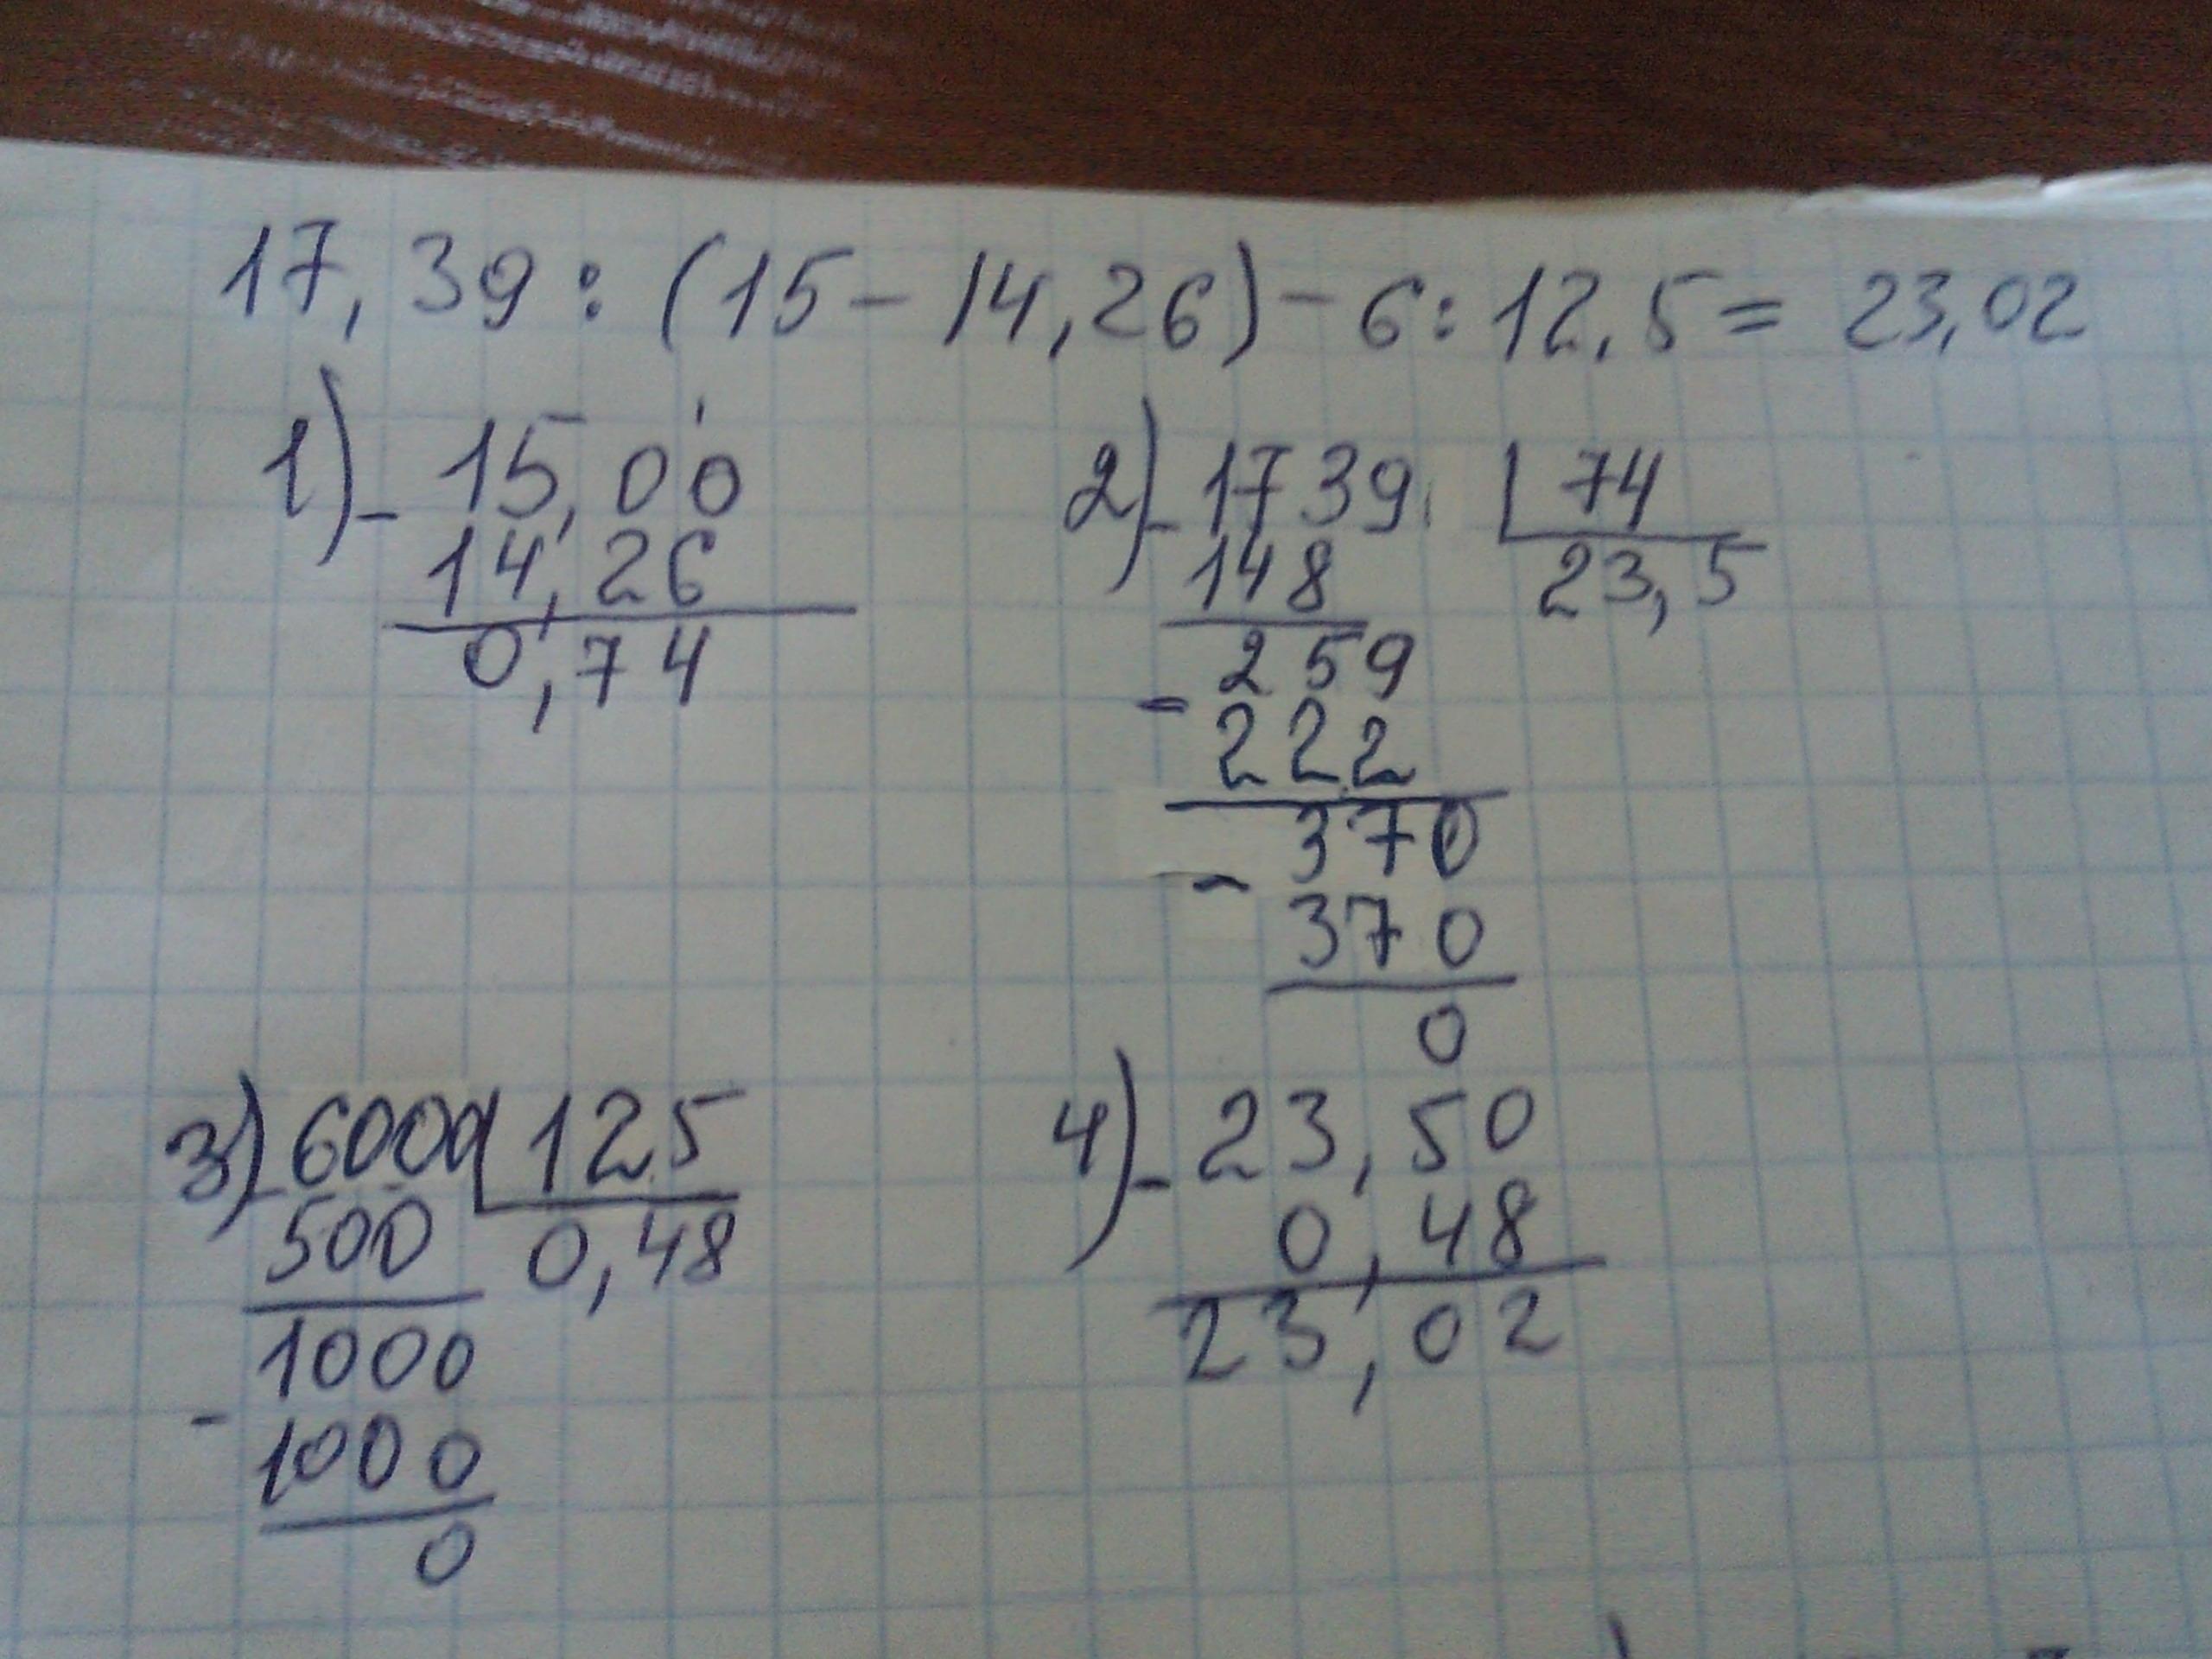 17,39 : (15 - 14,26) - 6 : 12,5 = 23,02
1) - 15,00
14,26
0,74
2) - 1739 | 74
148 23,5
- 259
222
- 370
370
0
3) - 6000 | 125
500 0,48
1000
- 1000
0
4) - 23,50
0,48
23,02